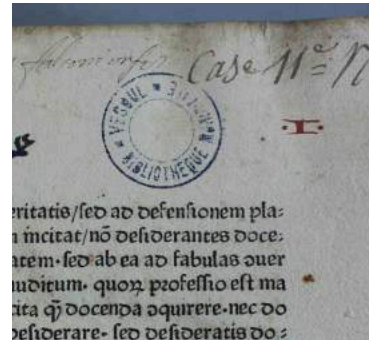 Case 11e N
VESOUL * BIBLIOTHEQUE *
·I·
eritatis/sed ad defensionem pla:
n incitat/nō desiderantes doce:
atem·sed ab ea ad fabulas auer
uditum· quoꝝ professio est ma
cita q̄ docenda aquirere·nec do
desiderare· sed desideratis do: